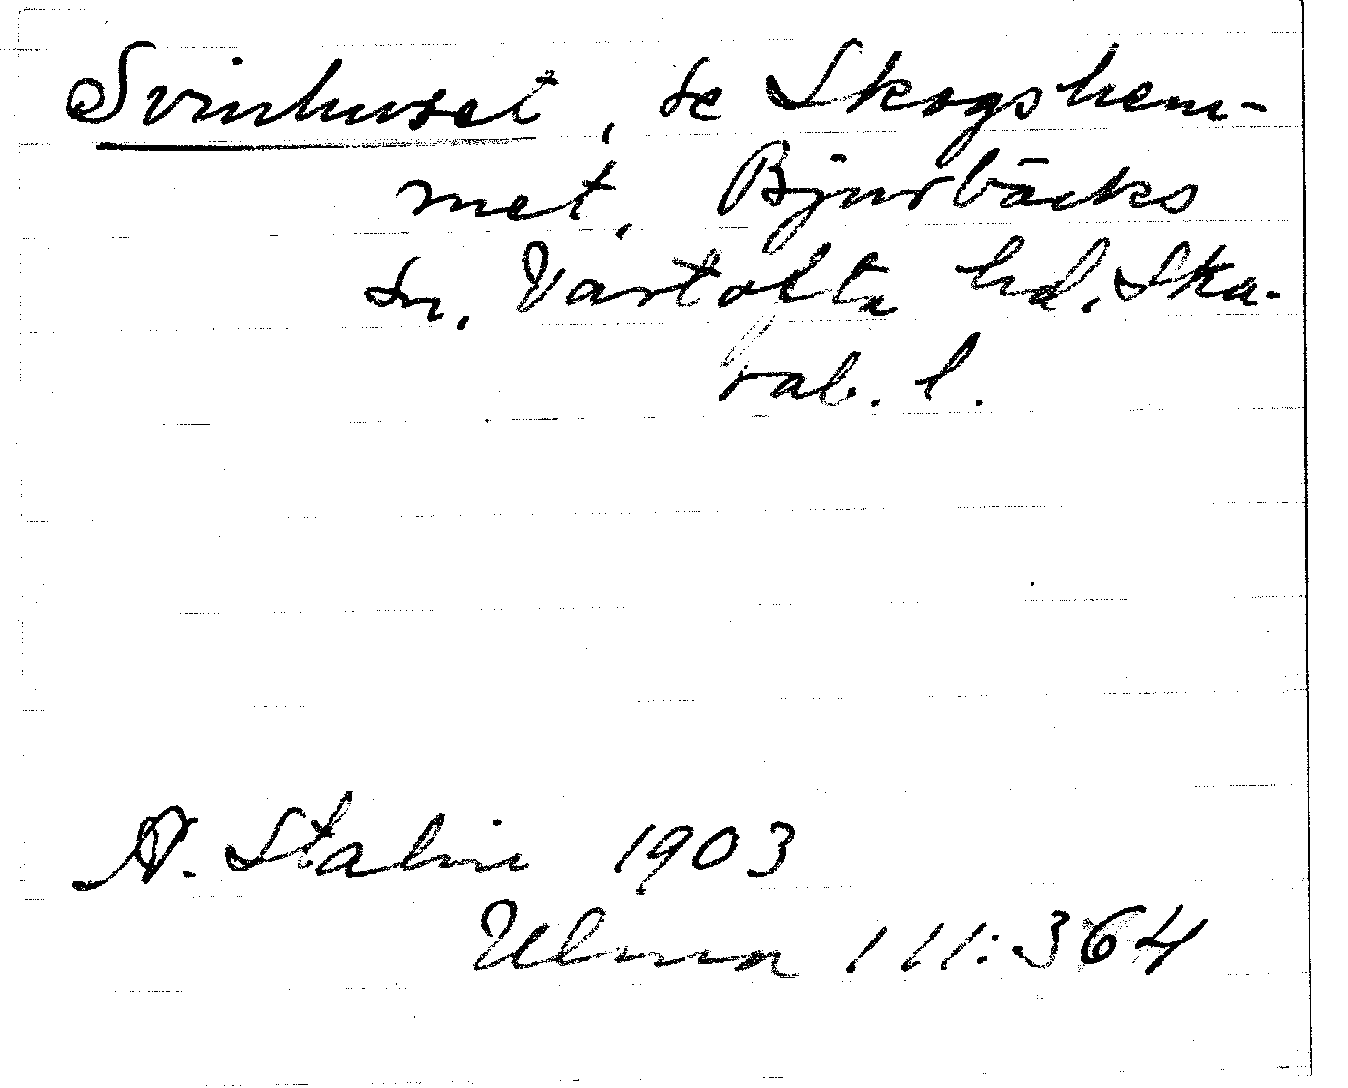 Svinhuset, se Skogshem-
met, Bjurbäcks
sn, Vartofta hd, Ska-
rab. l.
A. Stalin 1903
Ulma 111:364